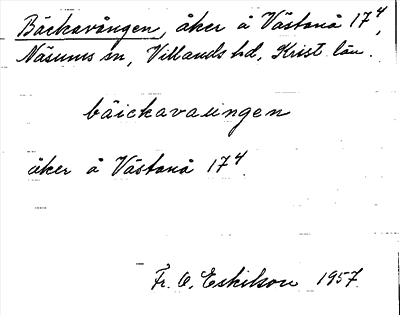 Bäckavången, åker å Västanå 17⁴,
Näsums sn, Villands hd, Krist. län.
bäickavaungen
åker å Västanå 17⁴
Fr. O. Eskilson 1957.